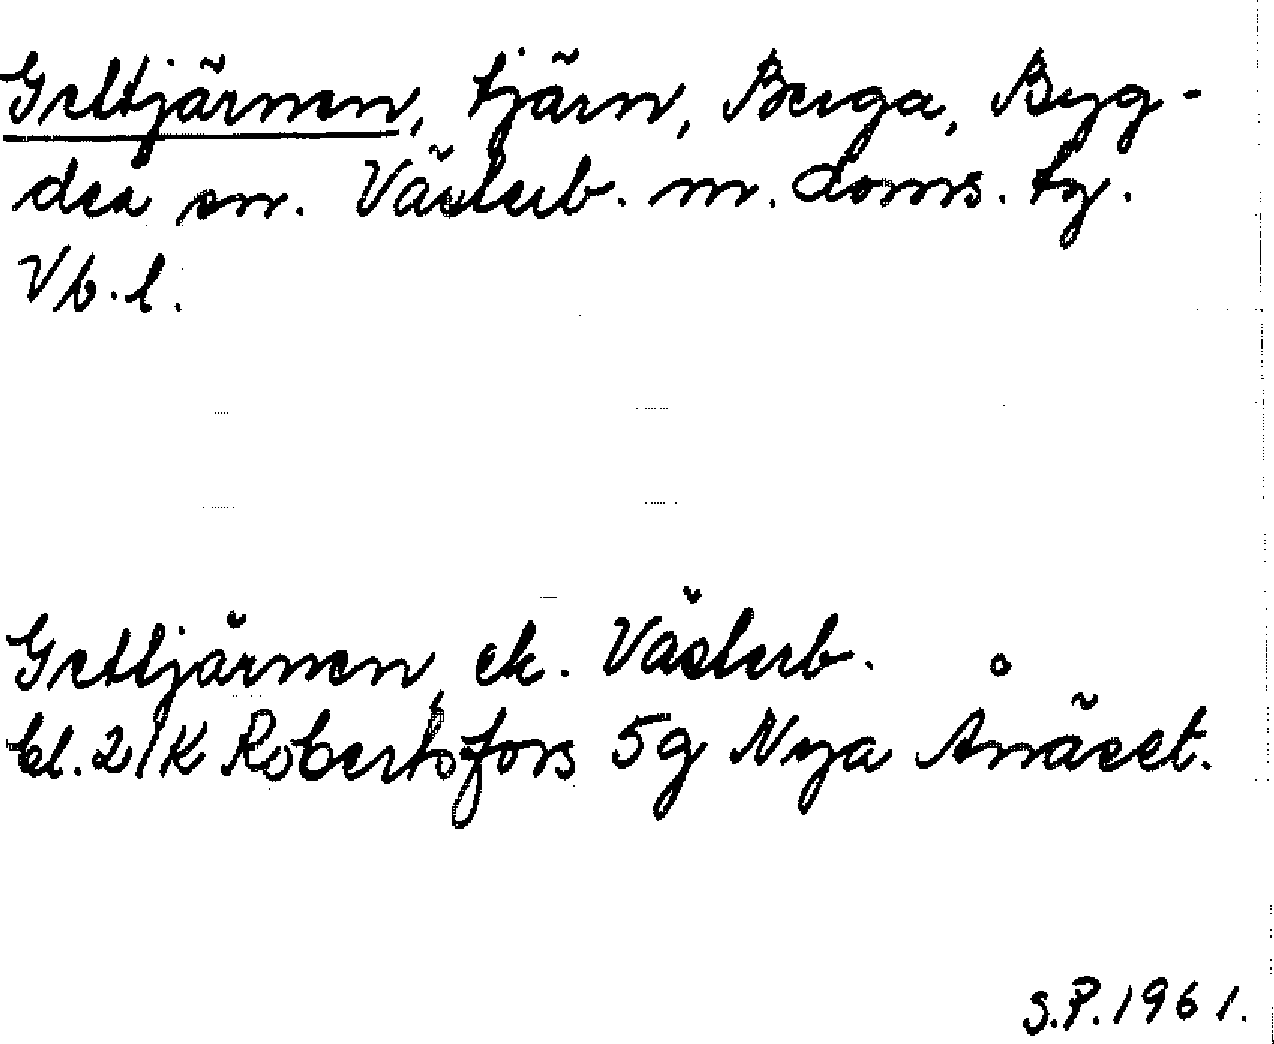 Gettjärnen, tjärn, Berga, Byg-
deå sn. Västerb. m. doms. tg.
Vb. l.
Gettjärnen, ek. Västerb.
bl. 2/K Robertsfors 5g Nya Ånäset.
S.P. 1961.